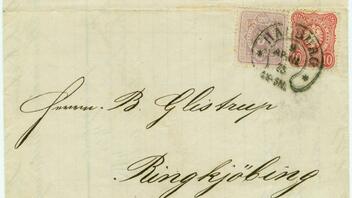 HAMBURG
10
Herrn B Glistrup
Ringkjöbing